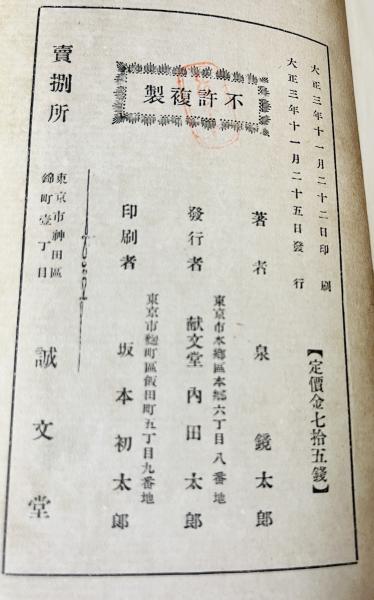 大正三年十一月二十二日印刷
大正三年十一月二十五日發行
【定價金七拾五錢】
不許複製
著者 泉鏡太郎
東京市本鄕區本鄕六丁目八番地
發行者 献文堂 內田太郎
東京市麴町區飯田町五丁目九番地
印刷者 坂本初太郎
東京市神田區
錦町壹丁目
賣捌所 誠文堂